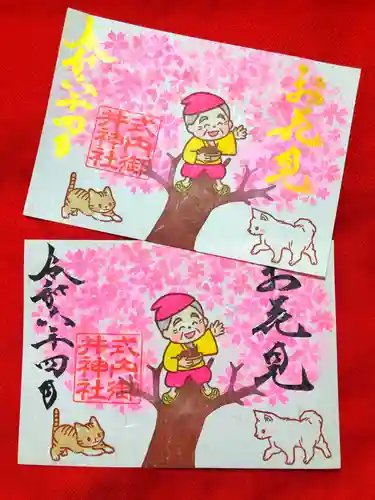 お花見
式内御
井神社
令和六年四月
お花見
式内御
井神社
令和六年四月